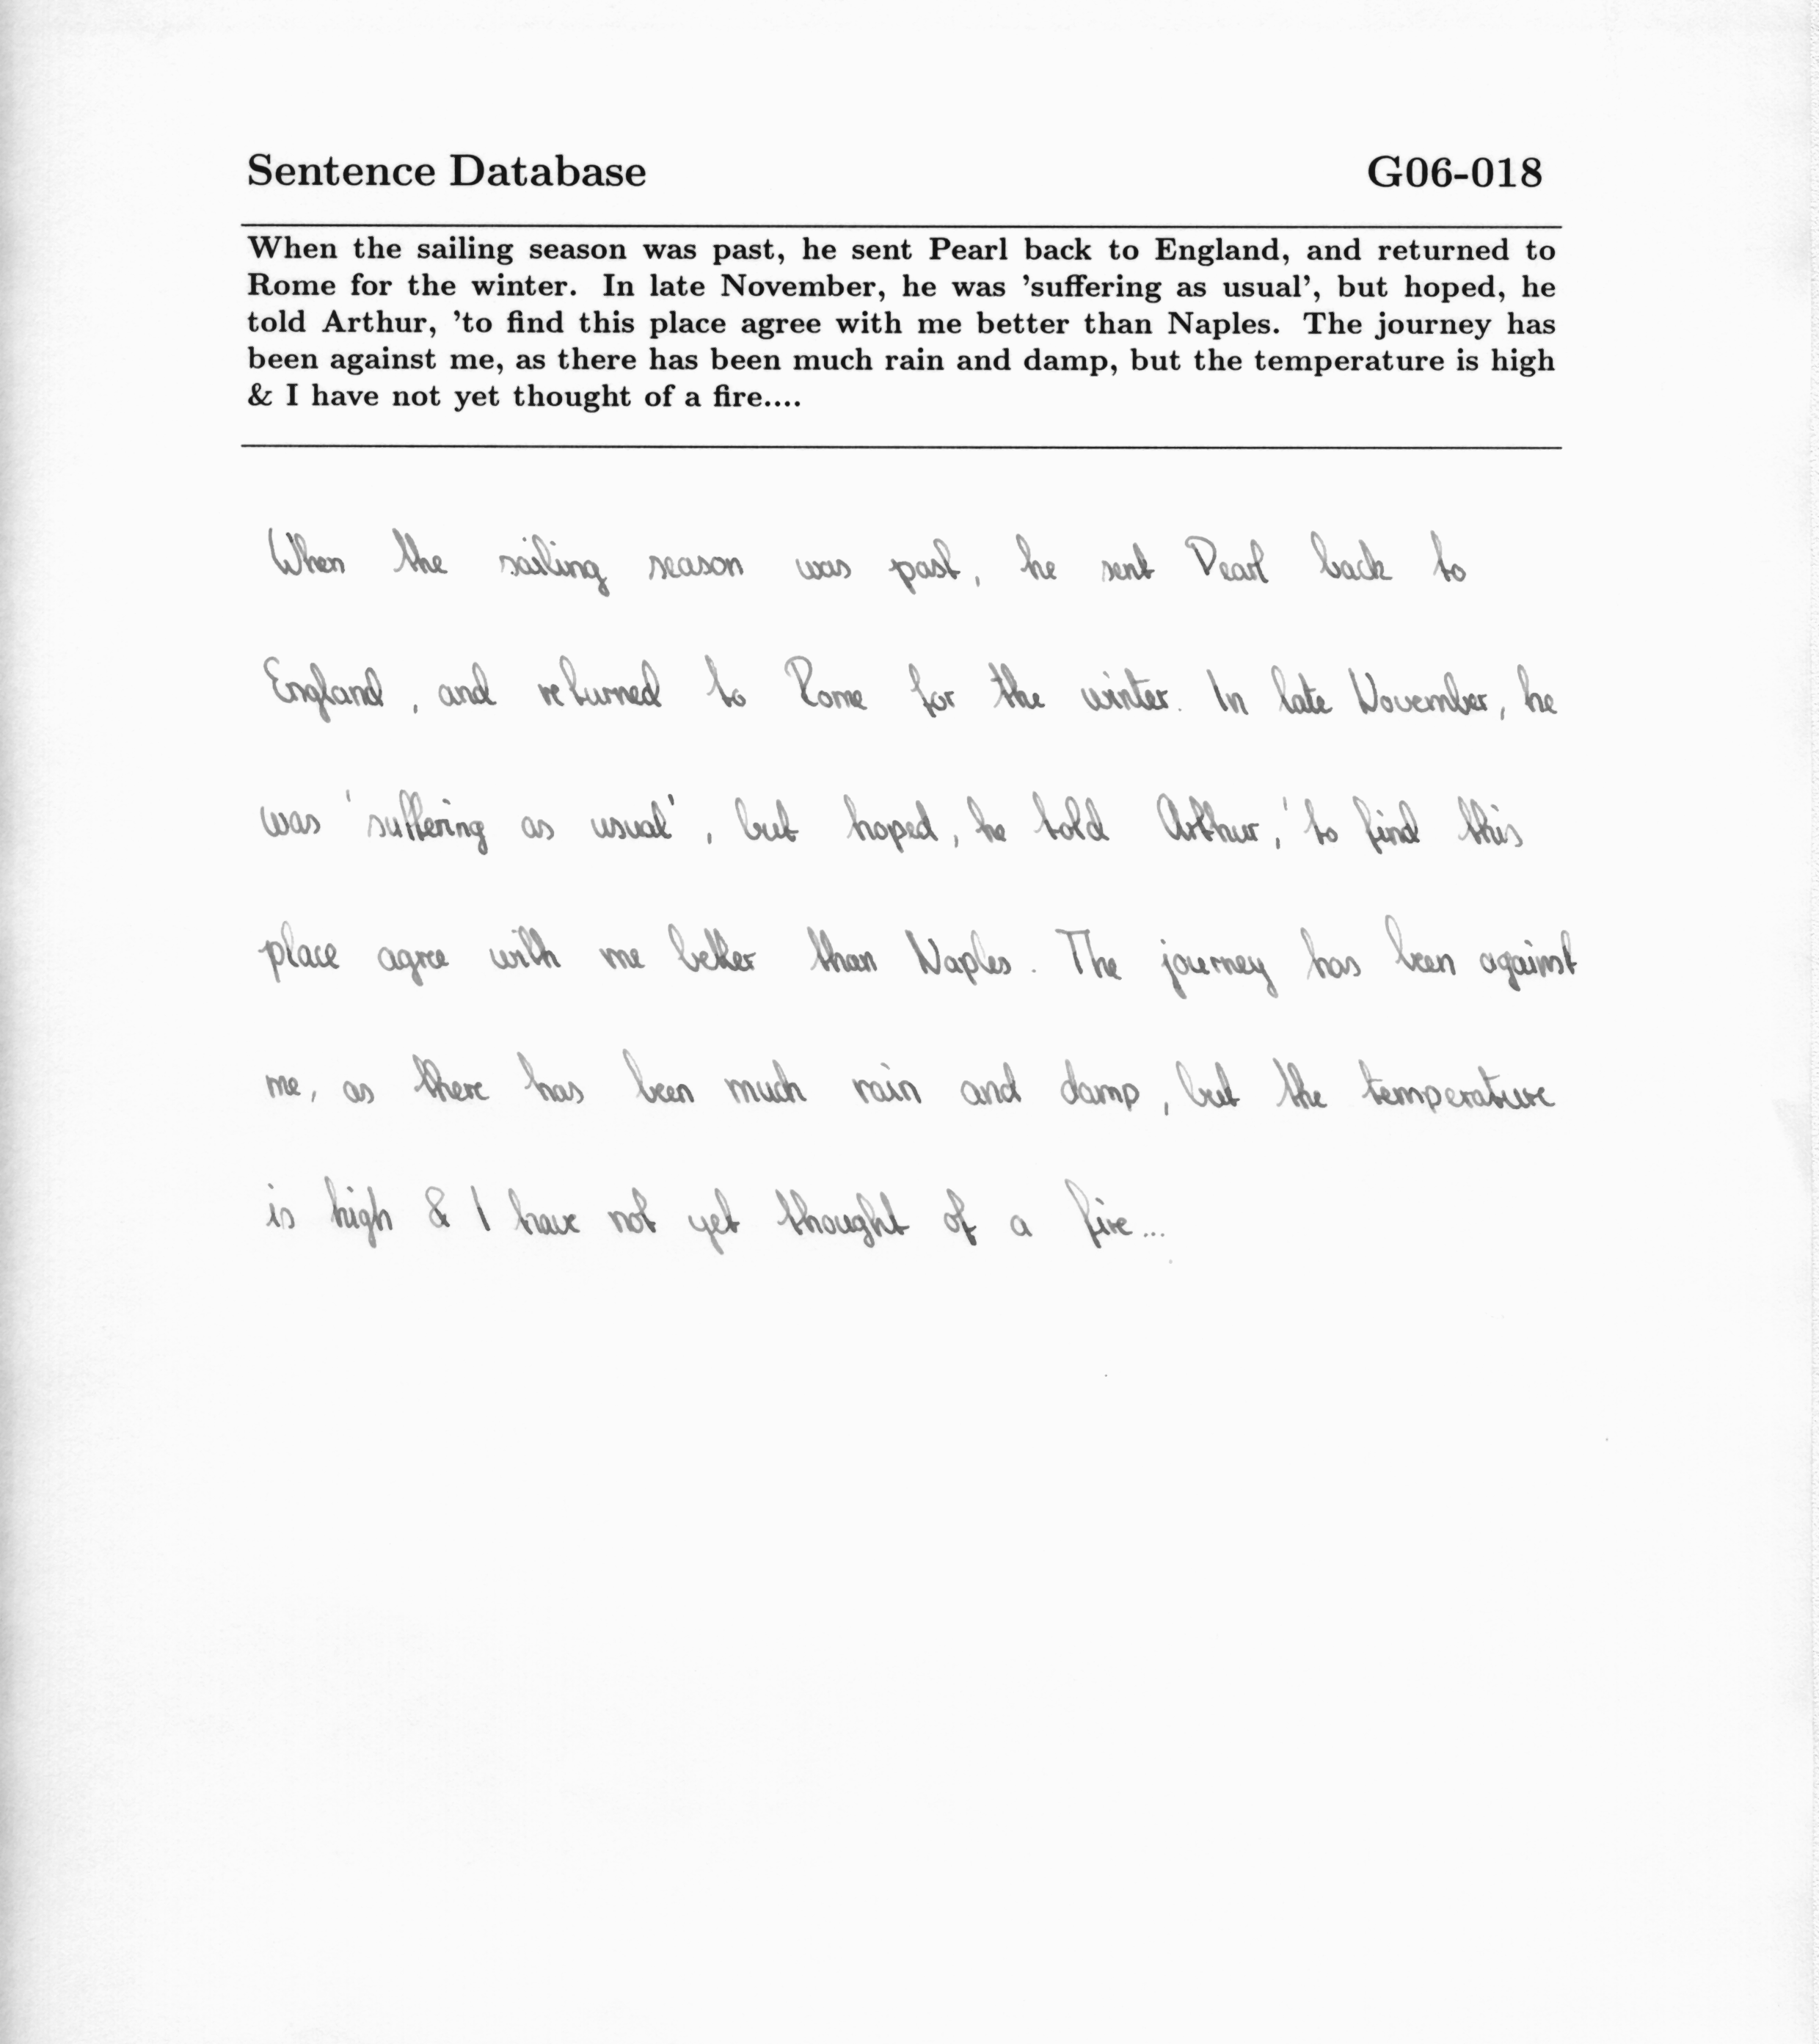 Sentence Database G06-018
When the sailing season was past, he sent Pearl back to England, and returned to
Rome for the winter. In late November, he was 'suffering as usual', but hoped, he
told Arthur, 'to find this place agree with me better than Naples. The journey has
been against me, as there has been much rain and damp, but the temperature is high
& I have not yet thought of a fire....
When the sailing season was past, he sent Pearl back to
England, and returned to Rome for the winter. In late November, he
was 'suffering as usual', but hoped, he told Arthur, 'to find this
place agree with me better than Naples. The journey has been against
me, as there has been much rain and damp, but the temperature
is high & I have not yet thought of a fire...